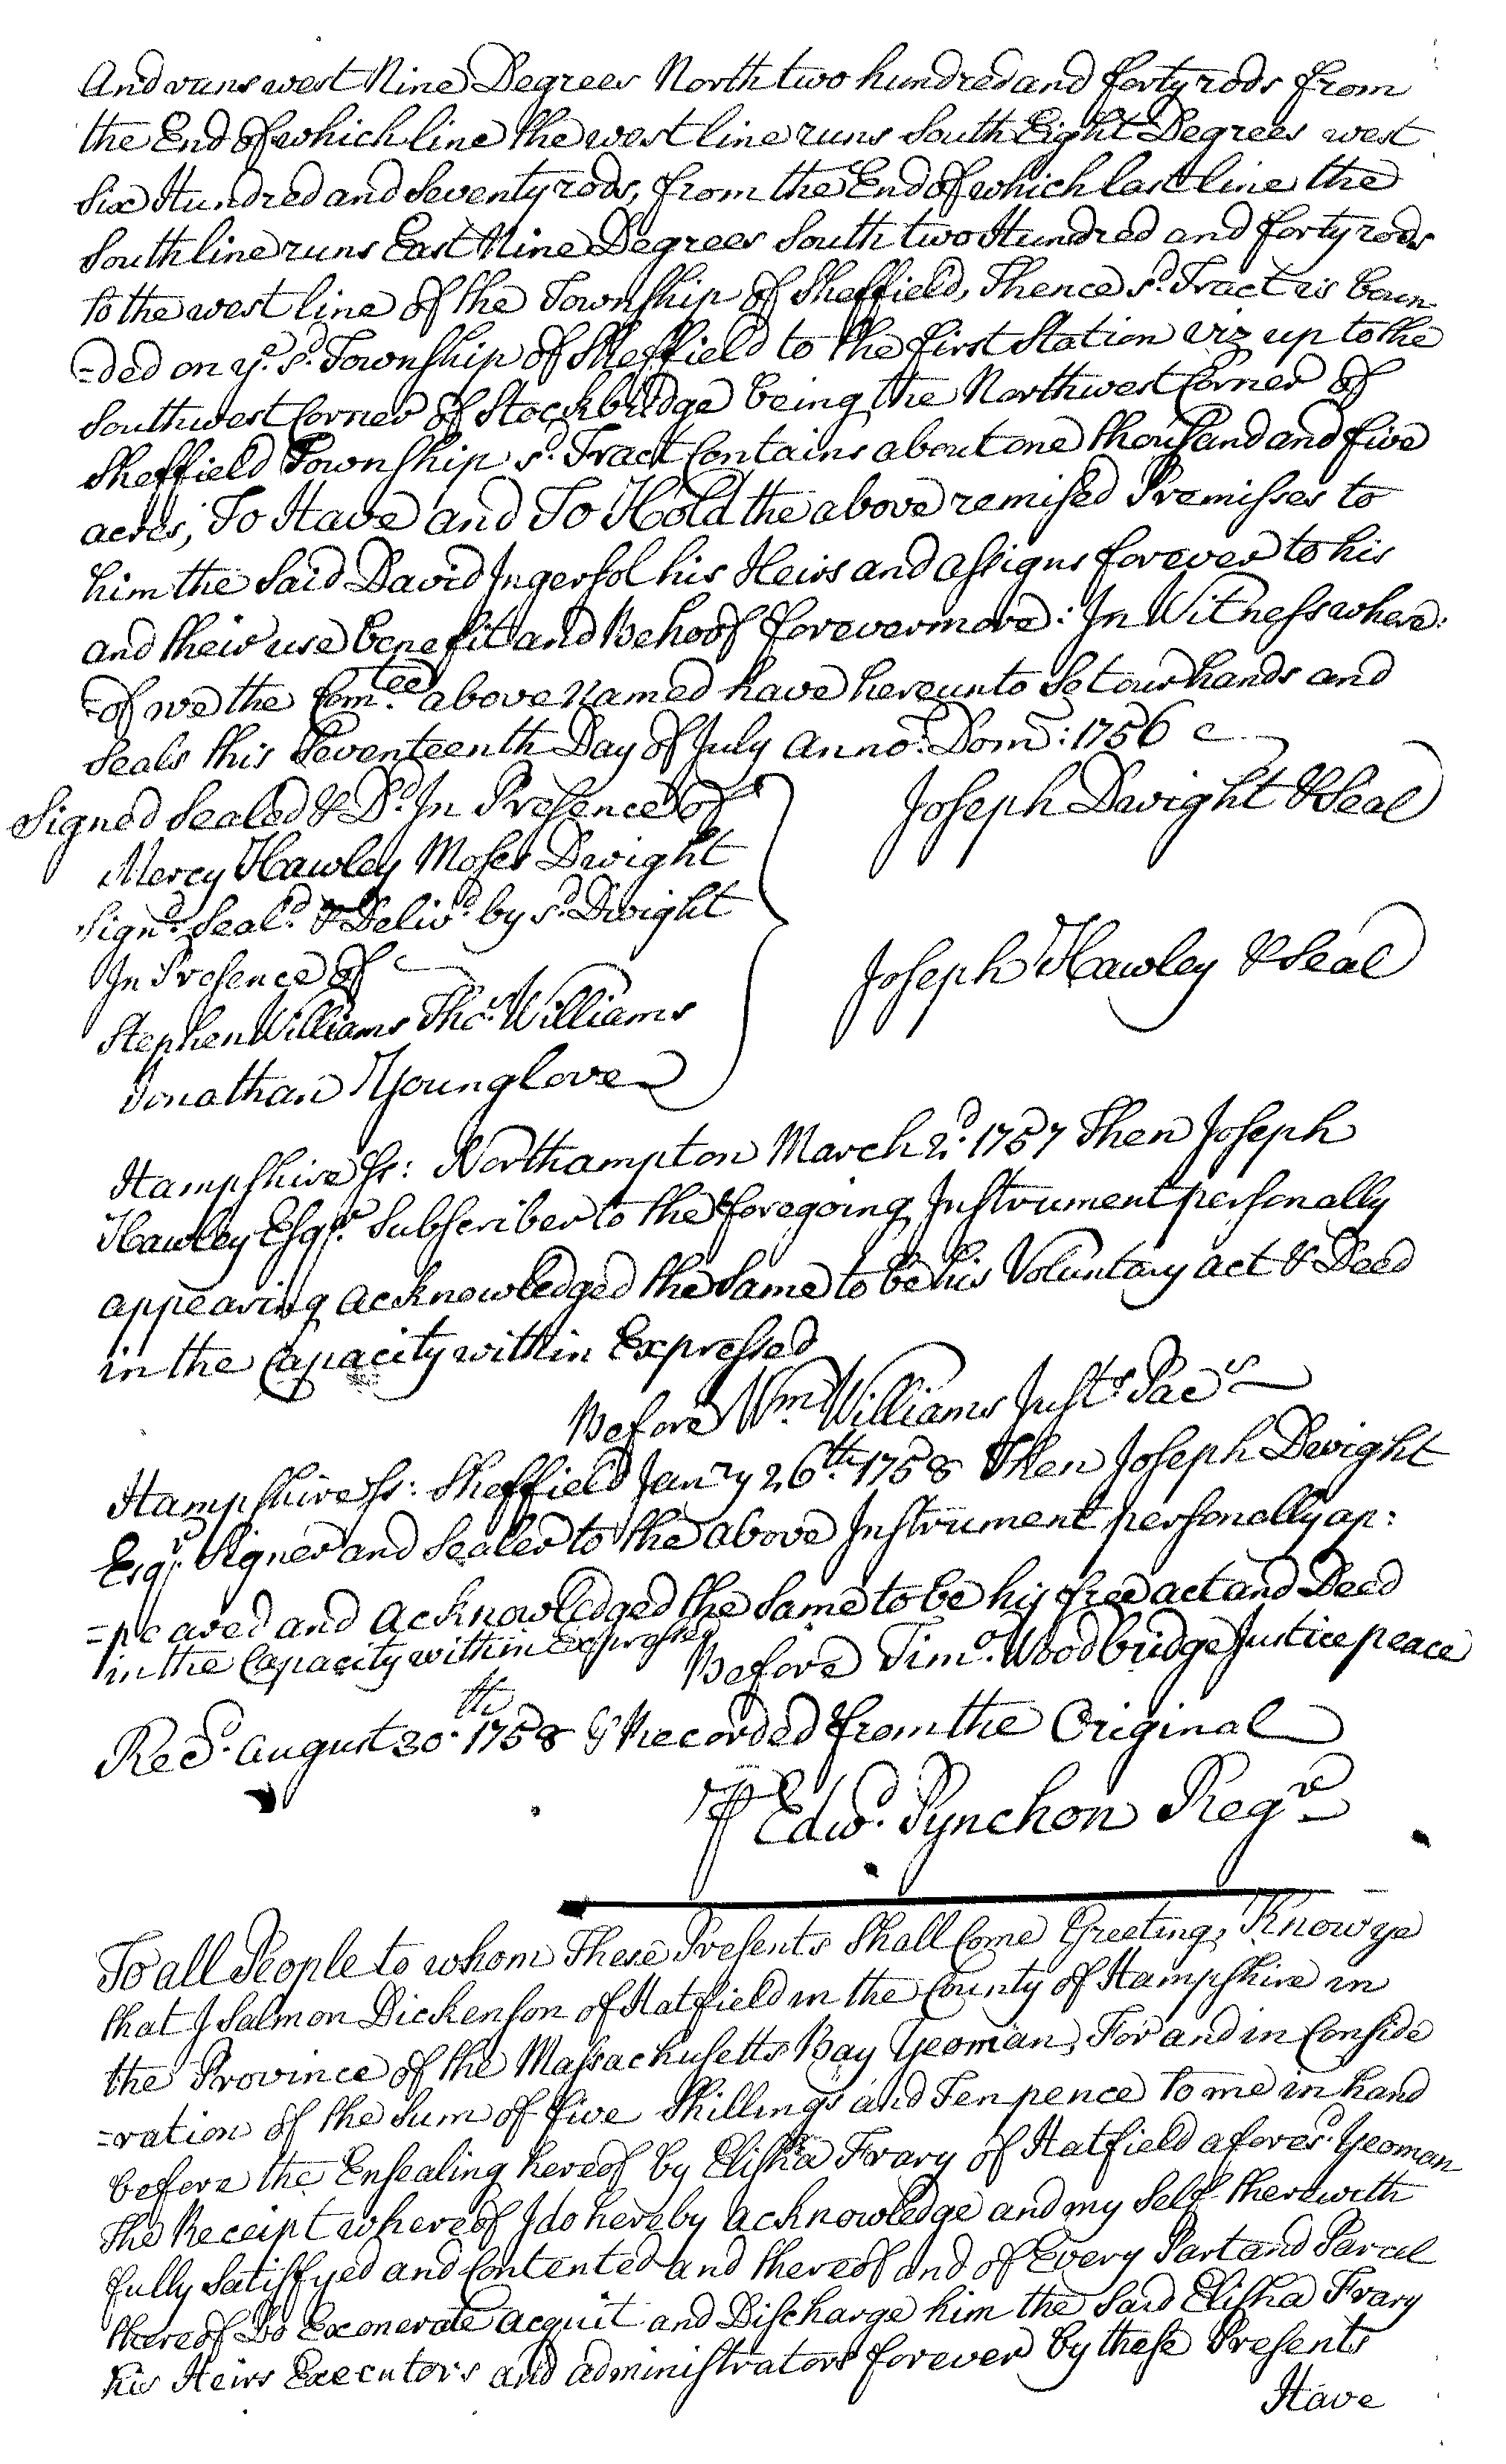 And runs west Nine Degrees North two hundred and forty rods from
the End of which line the west line runs South Eight Degrees west
Six Hundred and Seventy rods, from the End of which last line the
South line runs East Nine Degrees South two Hundred and forty rods
to the west line of the Township of Sheffield, Thence sd. Tract is boun
=ded on ye. sd. Township of Sheffield to the first Station viz up to the
Southwest Corner of Stockbridge being the Northwest Corner of
Sheffield Township sd. Tract Contains about one thousand and five
acres; To Have and To Hold the above remised Premisses to
him the Said David Ingersol his Heirs and assigns forever to his
and their use benefit and Behoof forevermore: In Witness where:
=of we the Comtee. above Named have hereunto Set our hands and
Seals this Seventeenth Day of July anno: Dom: 1756
Signed Sealed & Dd. In Presence of
Joseph Dwight & Seal
Mercy Hawley Moses Dwight
Signd. Seald. & Delivd. by sd. Dwight
In Presence of
Joseph Hawley & Seal
Stephen Williams Thos. Williams
Jonathan Younglove
Hampshire ss: Northampton March 2d. 1757 Then Joseph
Hawley Esqr. Subscriber to the foregoing Instrument personally
appearing acknowledged the Same to be his Voluntary act & Deed
in the Capacity within Expressed
Before Wm. Williams Justs. Pacs
Hampshire ss: Sheffield Janry 26th. 1758 Then Joseph Dwight
Esqr. Signer and Sealer to the above Instrument personally ap:
=peared and acknowledged the Same to be his free act and Deed
in the Capacity within Expressed
Before Timo. Woodbridge Justice peace
Recd. August 30th. 1758 & Recorded from the Original
Edwd. Pynchon Regr
To all People to whom These Presents Shall Come Greeting, Know ye
that I Salmon Dickenson of Hatfield in the County of Hampshire in
the Province of the Massachusetts Bay Yeoman, For and in Conside
=ration of the Sum of five Shillings and Ten pence to me in hand
before the Ensealing hereof by Elisha Frary of Hatfield aforesd. Yeoman
The Receipt whereof I do hereby acknowledge and my Self therewith
fully Satisfyed and Contented and thereof and of Every Part and Parcel
thereof Do Exonerate acquit and Discharge him the Said Elisha Frary
his Heirs Executors and administrators forever by these Presents
Have